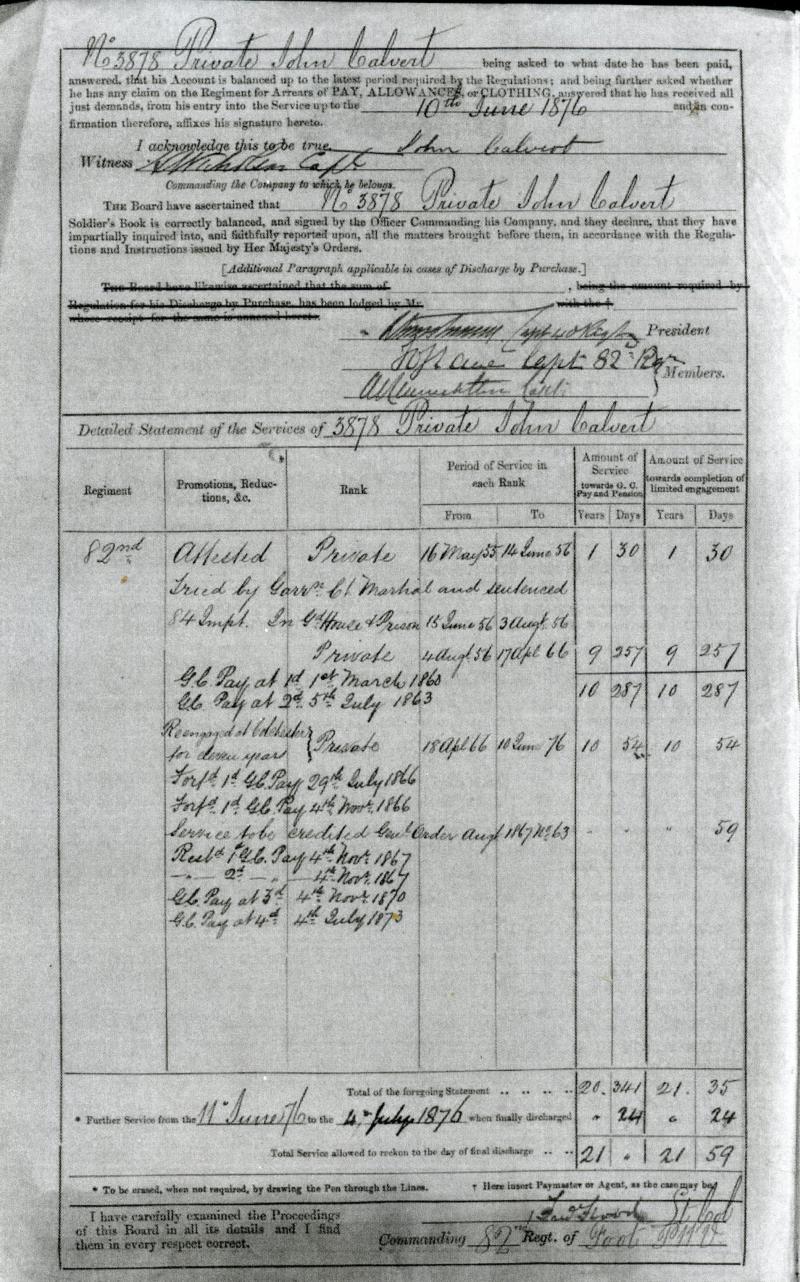 No 3878 Private John Calvert being asked to what date he has been paid,
answered, that his Account is balanced up to the latest period required by the Regulations; and being further asked whether
he has any claim on the Regiment for Arrears of PAY, ALLOWANCES, or CLOTHING, answered that he has received all
just demands, from his entry into the Service up to the 10th June 1876 and in con-
firmation therefore, affixes his signature hereto.
I acknowledge this to be true. John Calvert
Witness Capt
Commanding the Company to which he belongs.
THE BOARD have ascertained that No 3878 Private John Calvert
Soldier's Book is correctly balanced, and signed by the Officer Commanding his Company, and they declare, that they have
impartially inquired into, and faithfully reported upon, all the matters brought before them, in accordance with the Regula-
tions and Instructions issued by Her Majesty's Orders.
[Additional Paragraph applicable in cases of Discharge by Purchase.]
The Board have likewise ascertained that the sum of , being the amount required by
Regulation for his Discharge by Purchase, has been lodged by Mr. with the †
whose receipt for the same is annexed hereto.
Capt 40 Regt President
Capt 82d Regt
Members.
Capt
Detailed Statement of the Services of 3878 Private John Calvert
Regiment
Promotions, Reduc-
tions, &c.
Rank
Period of Service in
each Rank
From To
Amount of
Service
towards G. C.
Pay and Pension
Years Days
Amount of Service
towards completion of
limited engagement
Years Days
82nd Attested Private 16 May 55 14 June 56 1 30 1 30
Tried by Garrn Ct Martial and sentenced
84 Impt. In Gd House & Prison 15 June 56 3 Augt 56
Private 4 Augt 56 17 Apl 66 9 257 9 257
G.C. Pay at 1d 1st March 1860
10 287 10 287
G.C. Pay at 2d 5th July 1863
Reengaged at Colchester
for eleven years } Private 18 Apl 66 10 June 76 10 54 10 54
Forfd 1d G.C. Pay 29th July 1866
Forfd 1d G.C. Pay 4th Novr 1866
Service to be credited Genl Order Augt 1867 No 63 " " " 59
Restd 1d G.C. Pay 4th Novr 1867
— " — 2d — " — 4th Novr 1867
G.C. Pay at 3d 4th Novr 1870
G.C. Pay at 4d 4th July 1873
Total of the foregoing Statement .. .. .. .. 20. 341 21. 35
* Further Service from the 11th June 76 to the 4th July 1876 when finally discharged " 24 " 24
Total Service allowed to reckon to the day of final discharge .. .. 21 " 21 59
* To be erased, when not required, by drawing the Pen through the Lines. † Here insert Paymaster or Agent, as the case may be.
I have carefully examined the Proceedings
of this Board in all its details and I find
them in every respect correct.
Lt Col
Commanding 82nd Regt. of Foot